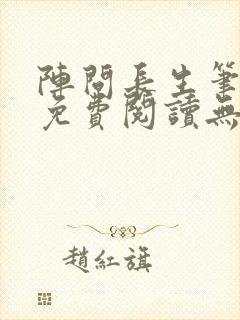 陣問長生筆
免費閱讀無
趙紅旗